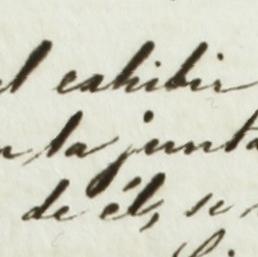 el exhibir
la junta
de él, se